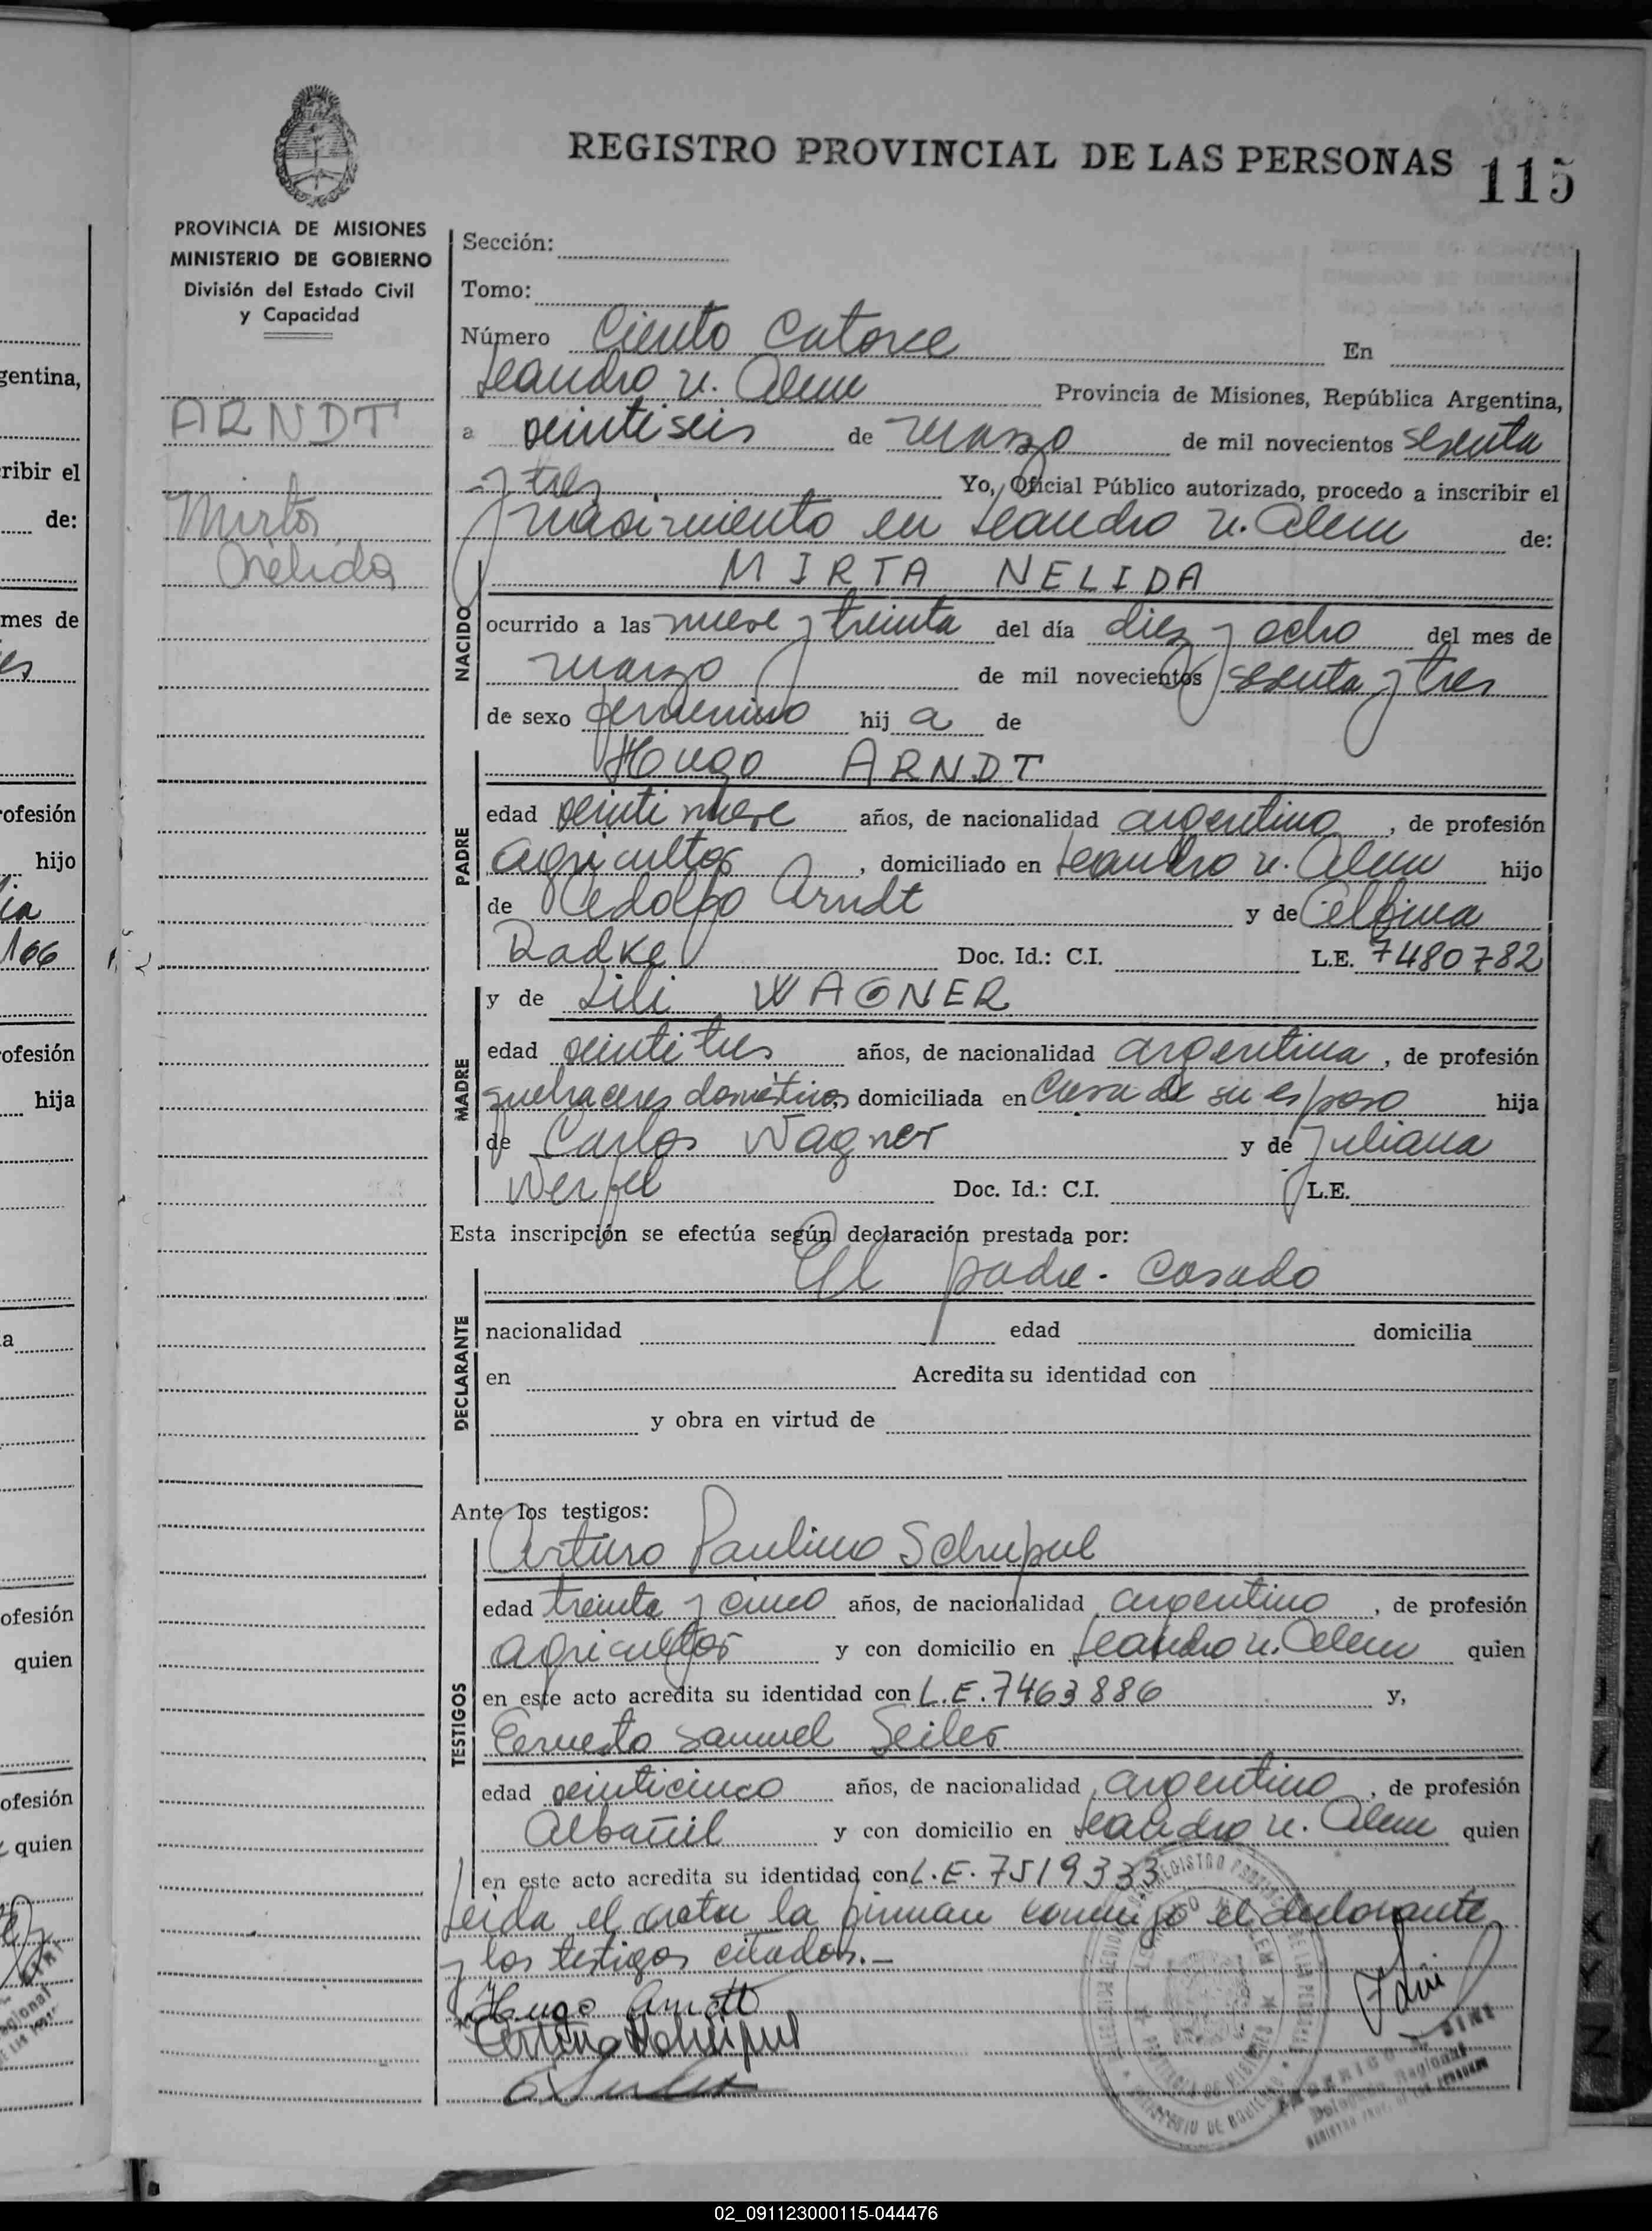 REGISTRO PROVINCIAL DE LAS PERSONAS 115
PROVINCIA DE MISIONES
MINISTERIO DE GOBIERNO
División del Estado Civil
y Capacidad
ARNDT
Mirta
Nélida
Sección:
Tomo:
Número Ciento Catorce En
Leandro N. Alem Provincia de Misiones, República Argentina,
a veintiseis de marzo de mil novecientos sesenta
y tres Yo, Oficial Público autorizado, procedo a inscribir el
nacimiento en Leandro N. Alem de:
NACIDO
MIRTA NELIDA
ocurrido a las nueve y treinta del día diez y ocho del mes de
marzo de mil novecientos sesenta y tres
de sexo femenino hij a de
PADRE
Hugo ARNDT
edad veintinueve años, de nacionalidad argentino, de profesión
agricultor, domiciliado en Leandro N. Alem hijo
de Adolfo Arndt y de
Radke Doc. Id.: C.I. L.E. 7480782
MADRE
y de Lili WAGNER
edad veintitres años, de nacionalidad argentina, de profesión
quehaceres domésticos domiciliada en Casa de su esposo hija
de Carlos Wagner y de Juliana
Werfel Doc. Id.: C.I. L.E.
Esta inscripción se efectúa según declaración prestada por:
DECLARANTE
El padre. Casado
nacionalidad edad domicilia
en Acredita su identidad con
y obra en virtud de
Ante los testigos:
TESTIGOS
Arturo Paulino
edad treinta y cinco años, de nacionalidad argentino, de profesión
agricultor y con domicilio en Leandro N. Alem quien
en este acto acredita su identidad con L.E. 7463886 y,
Ernesto Samuel Seiler
edad veinticinco años, de nacionalidad argentino, de profesión
Albañil y con domicilio en Leandro N. Alem quien
en este acto acredita su identidad con L.E. 7519333
Leida el acta la firman conmigo el declarante
y los testigos citados.-
Hugo Arndt
gentina,
ribir el
de:
mes de
ofesión
hijo
166
ofesión
hija
a
ofesión
quien
ofesión
quien
02_091123000115-044476